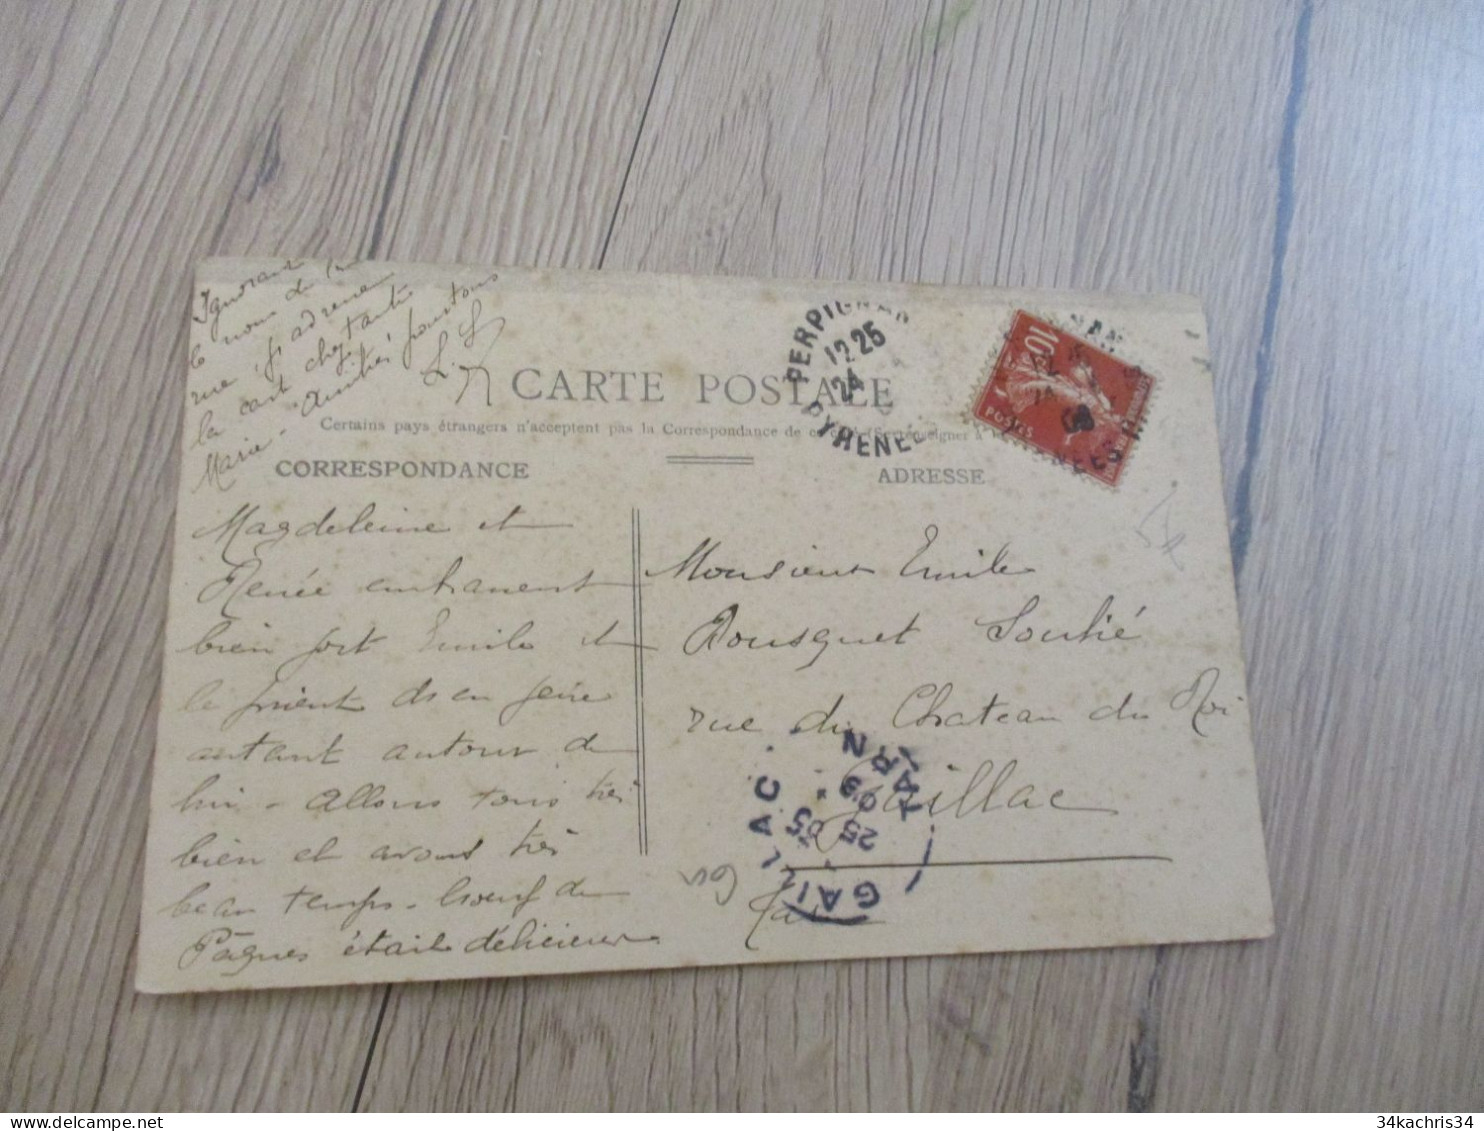 Ignorant
le nom de
rue, j'adresse
la carte chez tante
Marie - Amitiés pour tous
CARTE POSTALE
Certains pays étrangers n'acceptent pas la Correspondance de ce côté (Se renseigner à la
CORRESPONDANCE
ADRESSE
Magdeleine et
Renée embrassent
bien fort Emile et
le prient d'en faire
autant autour de
lui - Allons tous très
bien et avons très
beau temps - boeuf de
Pâques était délicieux
Monsieur Emile
Bousquet Soulié
rue du Château du Roi
Gaillac
Tarn
PERPIGNAN
12 25
24
PYRENEES
10
POSTES
GAILLAC
25
09
TARN
34kachris34